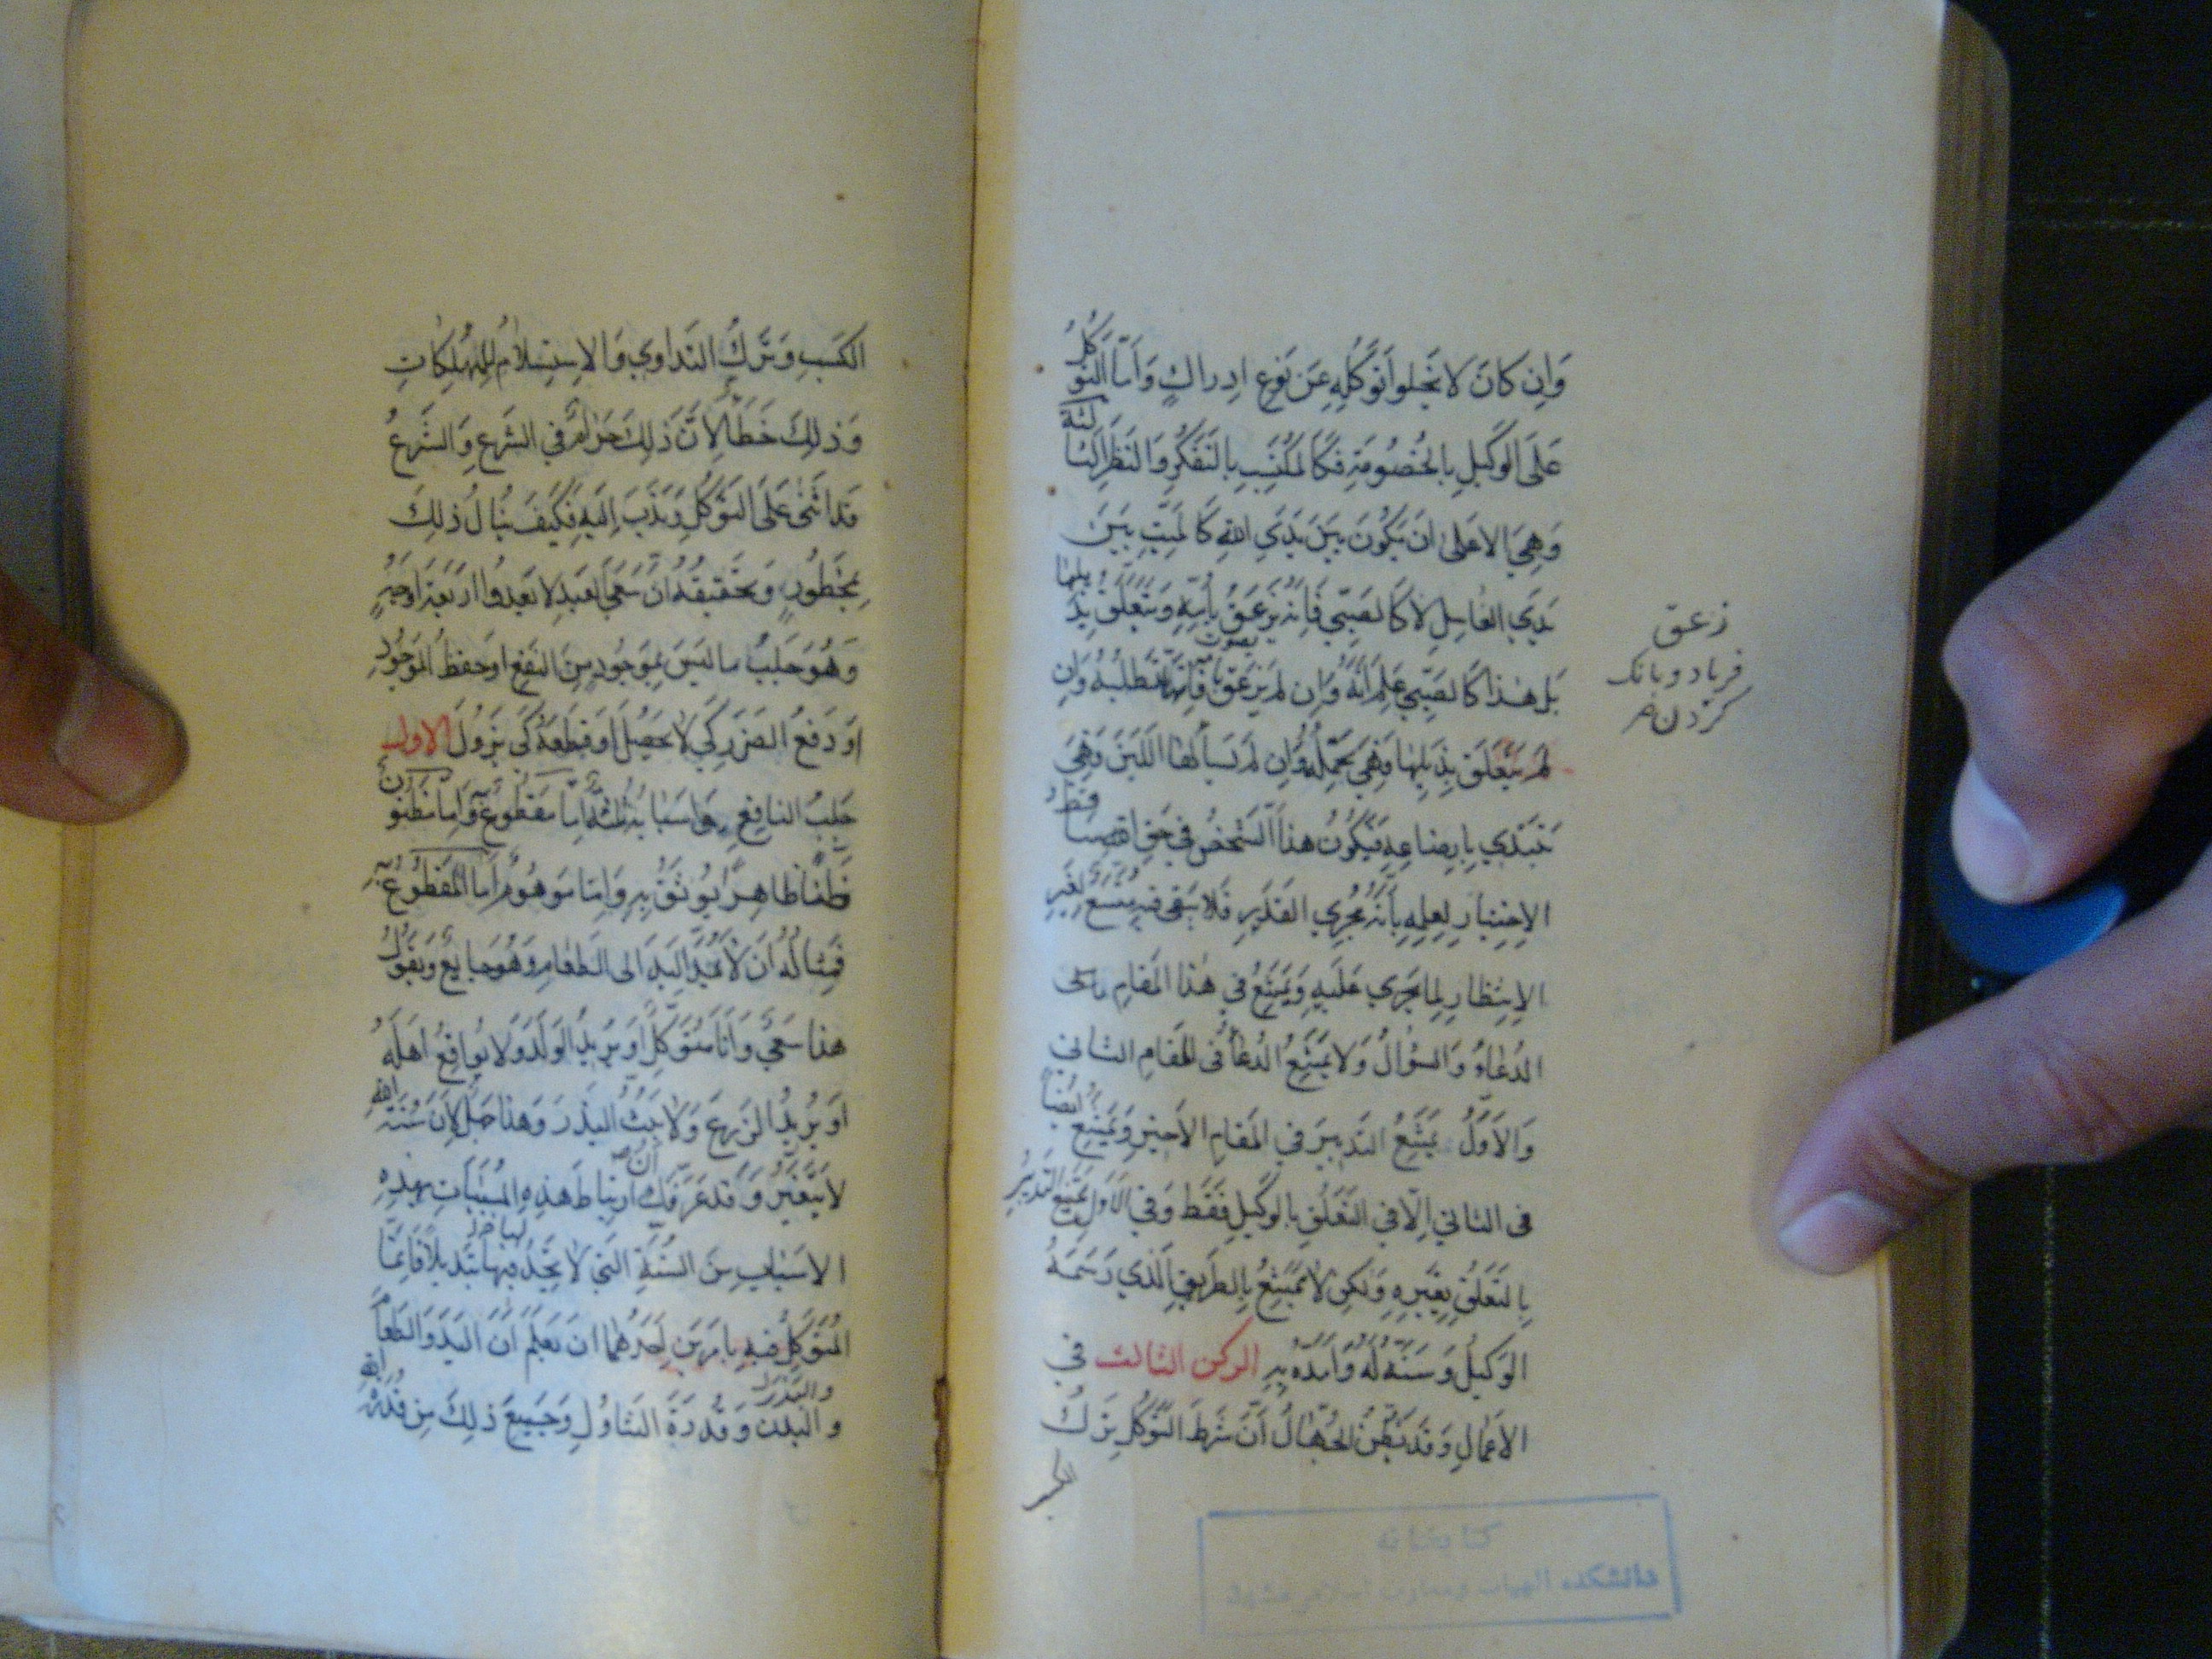 وَاِن كَانَ لا يَخْلُوا تَوَكُّلُهِ عَن نَوعِ اِدراكٍ وَاَمَّا التَّوَكُّلُ
عَلَى الوَكيلِ بِالخُصُومَةِ فَكَالمُكْتَسِبِ بِالتَفَكُّرِ وَالنَظَرِ الثالثة
وَهِيَ الاعلى ان يَكُونَ بَيْنَ يَدَيِ اللهِ كَالمَيِّتِ بَيْنَ
يَدَيِ الغاسِلِ لا كَالصَبِيِّ فَاِنَّهُ يَزعَقُ بِاُمِّهِ وَيَتَعَلَّقُ بِذَيلِها
بَل هذا كَالصَبِيِّ عَلِمَ اَنَّهُ وَاِن لَم يَزعَق فَاِنَّها تَطلُبُهُ وَاِن
لَم يَتَعَلَّق بِذَيلِها فَهِيَ تَحمِلُهُ وَاِن لَم يَسأَلها اللَّبَنَ فَهِيَ
تَبتَدي بِاِرضاعِهِ فَيَكُونُ هذا الشَخصُ في حَقِّ
الاِختِيارِ لِعِلمِهِ بِاَنَّهُ مُجرِي القَدَرِ فَلا يَبقى فيهِ مُتَّسَعٌ لِغَيرِ
الاِنتِظارِ لِما يَجري عَلَيهِ وَيَمتَنِعُ في هٰذا المَقامِ
الدُعاءُ وَالسُؤالُ وَلا يَمتَنِعُ الدُعاءُ في المَقامِ الثاني
وَالاَوَّلُ يَمتَنِعُ التَدبيرُ في المَقامِ الاَخيرِ وَيَمتَنِعُ ايضاً
في الثاني اِلّا في التَعَلُّقِ بِالوَكيلِ فَقَط وَفي الاَوَّلِ يَمتَنِعُ التَدبيرُ
بِالتَعَلُّقِ بِغَيرِهِ وَلكِن لا يَمتَنِعُ بِالطَريقِ الَّذي رَسَمَهُ
الوَكيلُ وَسَنَّهُ لَهُ وَاَمَرَهُ بِهِ الركن الثالث في
الاَعمالِ وَقَد يَظُنُّ الجُهّالُ اَنَّ شَرطَ التَوَكُّلِ تَركُ
زعق
فرياد و بانك
كردن
بصوت
كتابخانه
دانشكده الهيات و معارف اسلامى مشهد
الكَسبِ وَتَركُ التَداوي وَالاِستِسلامُ لِلمُهلِكاتِ
وَذلِكَ خَطَأٌ لِاَنَّ ذلِكَ حَرامٌ في الشَرعِ وَالشَرعُ
قَد اَثنى عَلَى التَوَكُّلِ وَنَدَبَ اِلَيهِ فَكَيفَ يُنالُ ذلِكَ
بِمَحظُورٍ وَتَحقيقُهُ اَنَّ سَعيَ العَبدِ لا يَعدُوا اَربَعَةَ اَوجُهٍ
وَهُوَ جَلبُ ما لَيسَ بِمَوجُودٍ مِنَ النَفعِ اَو حِفظُ المَوجُودِ
اَو دَفعُ الضَرَرِ كَي لا يَحصُلَ اَو قَطعُهُ كَي يَزُولَ الاول
جَلبُ النافِعِ وَاَسبابُهُ ثَلٰثَةٌ اِمّا مَقطُوعٌ وَاِمّا مَظنُونٌ
ظَنّاً ظاهِراً يُوثَقُ بِهِ وَاِمّا مَوهُومٌ اَمّا المَقطُوعُ بِهِ
فَمِثالُهُ اَن لا يَمُدَّ اليَدَ اِلَى الطَعامِ وَهُوَ جايِعٌ وَيَقُولُ
هٰذا سَعيٌ وَاَنَا مُتَوَكِّلٌ اَو يُريدُ الوَلَدَ وَلا يُواقِعُ اَهلَهُ
اَو يُريدُ الزَرعَ وَلا يَبُثُّ البَذرَ وَهٰذا جَهلٌ لِاَنَّ سُنَّةَ اللهِ
لا يَتَغَيَّرُ وَقَد عَرَّفَكَ اَنَّ ارتِباطَ هٰذِهِ المُسَبَّباتِ بِهٰذِهِ
الاَسبابِ مِنَ السُنَّةِ الَّتي لا تَجِدُ فيها تَبديلاً فَاِنَّما
المُتَوَكِّلُ فيهِ بِاَمرَينِ اَحَدُهُما اَن يَعلَمَ اَنَّ اليَدَ وَالطَعامَ
وَالبَذرَ
وَقُدرَةَ التَناوُلِ وَجَميعَ ذلِكَ مِن قُدرَةِ اللهِ